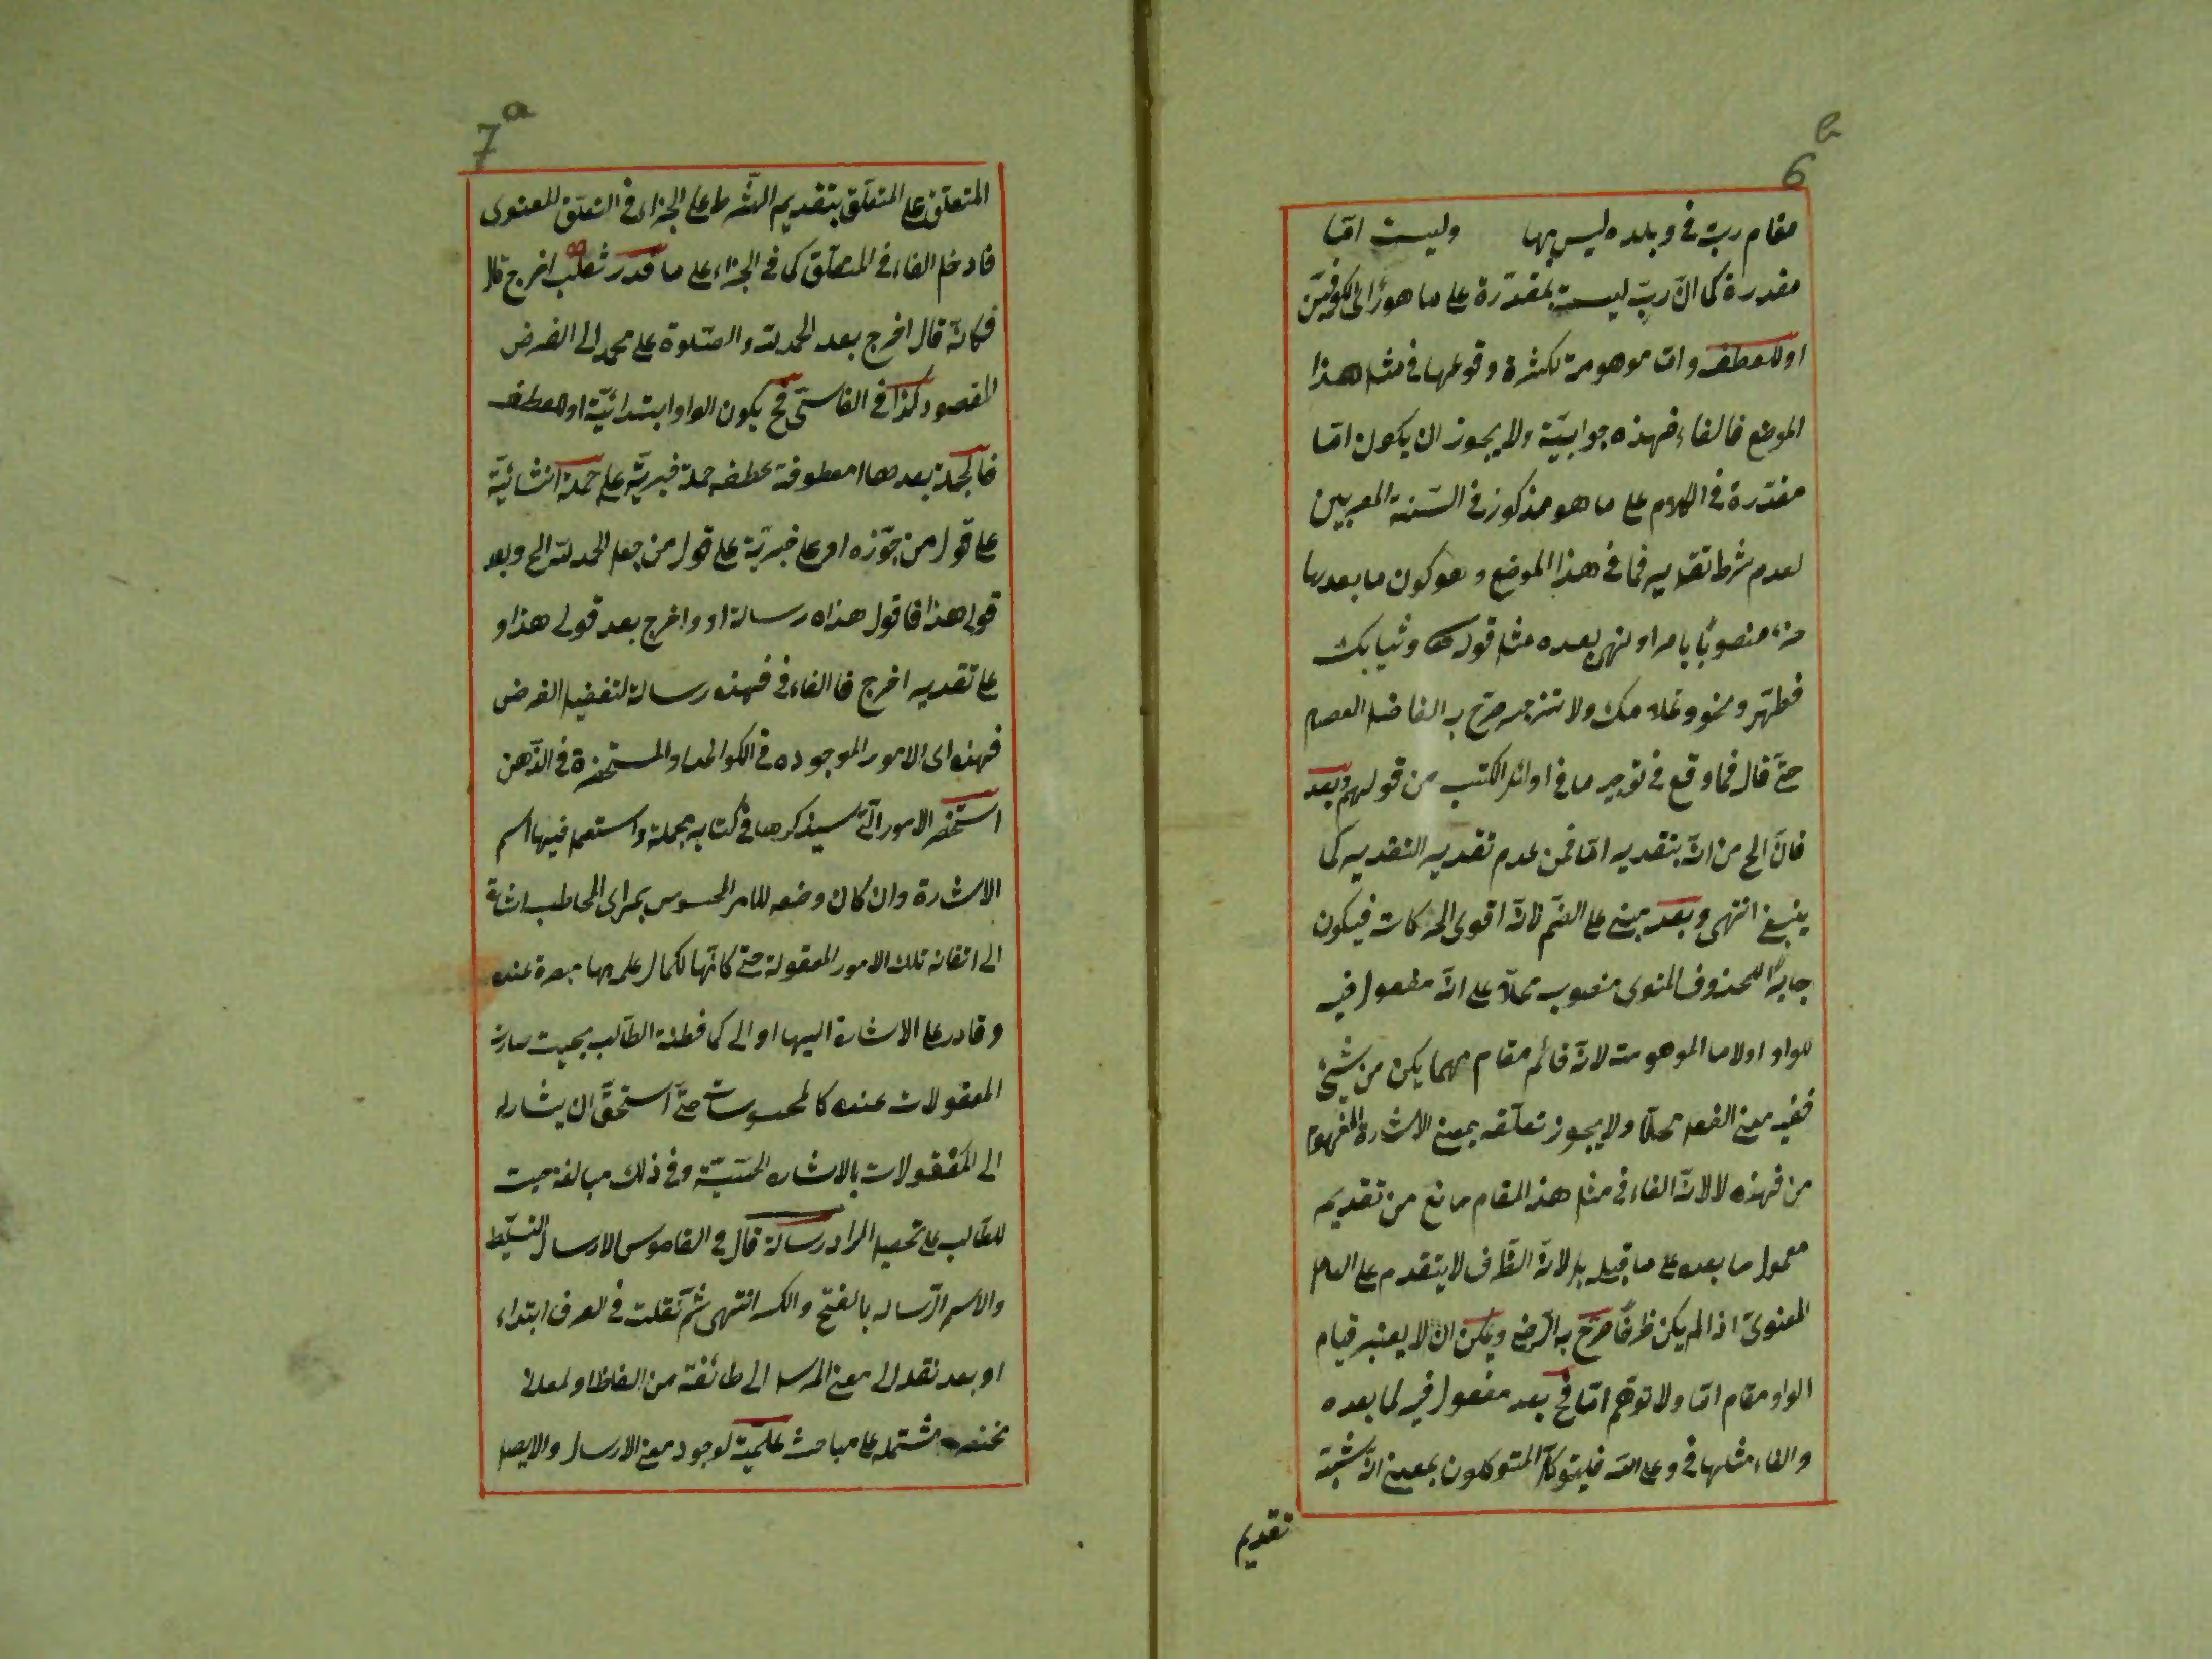 6b
مقام رب في وبلدة ليس بها وليست امّا
مقدرة كما انّ ربّ ليست بمقدّرة على ما هو رأى الكوفيّين
او للعطف وامّا موهومة لكثرة وقوعها في مثل هذا
الموضع فالفاء فهذه جوابيّة ولا يجوز ان يكون امّا
مقدّرة في الكلام على ما هو مذكور في السنة المعربين
لعدم شرط تقديرها في هذا الموضع وهو كون ما بعدها
منصوبًا بامر او نهى بعده مثل قوله وثيابك
فطهّر ونحو وغلامك ولا تنزجر صرّح به الفاضل العصام
حتّى قال فما وقع في توجيه ما في اوائل الكتب من قولهم وبعد
فانّ الخ من انّه بتقدير امّا فمن عدم تقدير التقدير كما
ينبغي انتهى وبعد مبني على الضّم لانّه اقوى الحركات فيكون
جابرًا للمحذوف المنوى منصوب محلّا على انّه مفعول فيه
للواو او لامّا الموهومة لانّه قائم مقام مهما يكن من شئ
ففيه معنى الفعل محلّا ولا يجوز تعلّقه بمعنى الاشارة المفهوم
من فهذه لا لانّ الفاء في مثل هذا المقام مانع من تقديم
معمول ما بعده على ما قبله بل لانّ الظّرف لا يتقدم على العامل
المعنوىّ اذا لم يكن ظرفًا صرّح به الرّضي ويمكن ان لا يعتبر قيام
الواو مقام امّا ولا توهّم امّا فح بعد مفعول فيه لما بعده
والفاء مثلها في وعلى الله فليتوكّل المتوكلون بمعنى انّه شبّه
تقديم
7a
المتعلّق على المتعلّق بتقديم الشّرط على الجزاء في التعلّق المعنوى
فادخل الفاء في المتعلّق كما في الجزاء على ما قدر ثعلب اخرج
فكانّه قال اخرج بعد الحمدلة والصّلوة على محمد الى الغرض
المقصود كذا في الفاسيّ فح يكون الواو ابتدائيّة او للعطف
فالجملة بعدها معطوفة عطف جملة خبريّة على جملة انشائيّة
على قول من جوّزه او على خبريّة على قول من جعل الحمدلة الخ وبعد
قولى هذا فاقول هذه رسالة او واخرج بعد قولى هذا و
على تقدير اخرج فالفاء في فهذه رسالة لتفصيل الغرض
فهذه اى الامور الموجوده في الكواغد او المستحضرة في الذّهن
استحضر الامور الّتى سيذكرها في كتابه مجملة واستعمل فيها اسم
الاشارة وان كان وضعه للامر المحسوس بمرأى المخاطب اشارة
الى اتقانه تلك الامور المعقولة حتّى كانّها لكمال علمه بها مبصرة عنده
وقادر على الاشارة اليها او الى كمال فطنة الطّالب بحيث صارت
المعقولات عنده كالمحسوسات حتّى استحقّ ان يشار له
الى المعقولات بالاشارة الحسّيّة وفي ذلك مبالغة حيث
للطّالب على تحصيل المراد رسالة قال في القاموس الارسال التسليط
والاسم الرّسالة بالفتح والكسر انتهى ثمّ نقلت في العرف ابتداء
او بعد نقله الى معنى المرسل الى طائفة من الفاظ او لمعان
مختصرة مشتمل على مباحث علميّة لوجود معنى الارسال والايصال